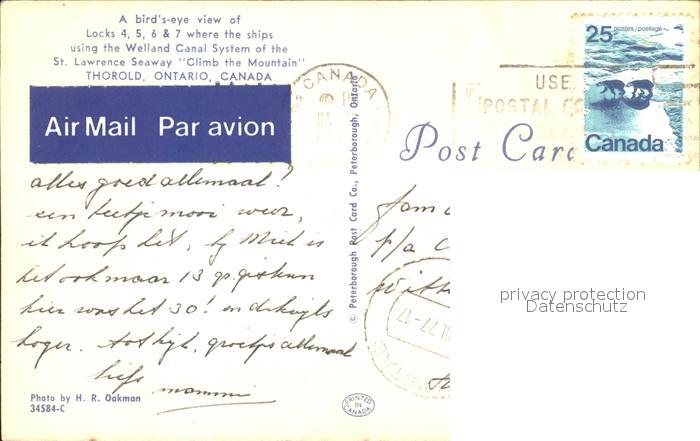 A bird's-eye view of
Locks 4, 5, 6 & 7 where the ships
using the Welland Canal System of the
St. Lawrence Seaway "Climb the Mountain"
THOROLD, ONTARIO, CANADA
Air Mail Par avion
alles goed allemaal!
een beetje mooi weer,
ik hoop het, by Miet is
het ook maar 13 gr.
hier was het 30! en
hoger. groetjes allemaal
liefs mammi
Photo by H. R. Oakman
34584-C
© Peterborough Post Card Co., Peterborough, Ontario
PRINTED
IN
CANADA
CANADA
USE
POSTAL
25 postes/postage
Canada
Post Car
Fam
p/a
privacy protection
Datenschutz